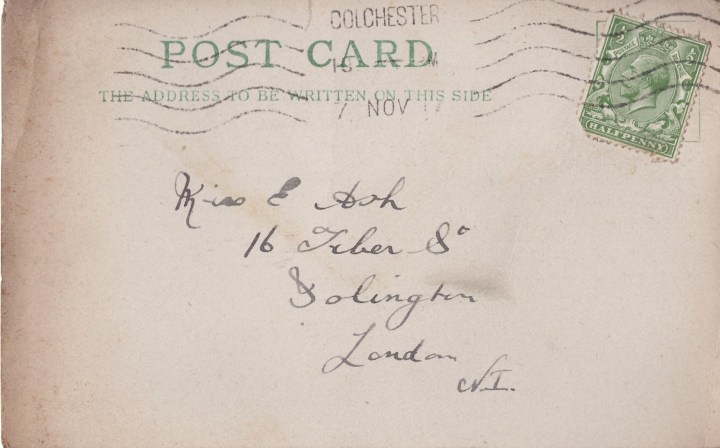 COLCHESTER
POST CARD
15 M
THE ADDRESS TO BE WRITTEN ON THIS SIDE
7 NOV 17
POSTAGE
HALFPENNY
Miss E Ash
16 Tiber St
Islington
London
N.I.